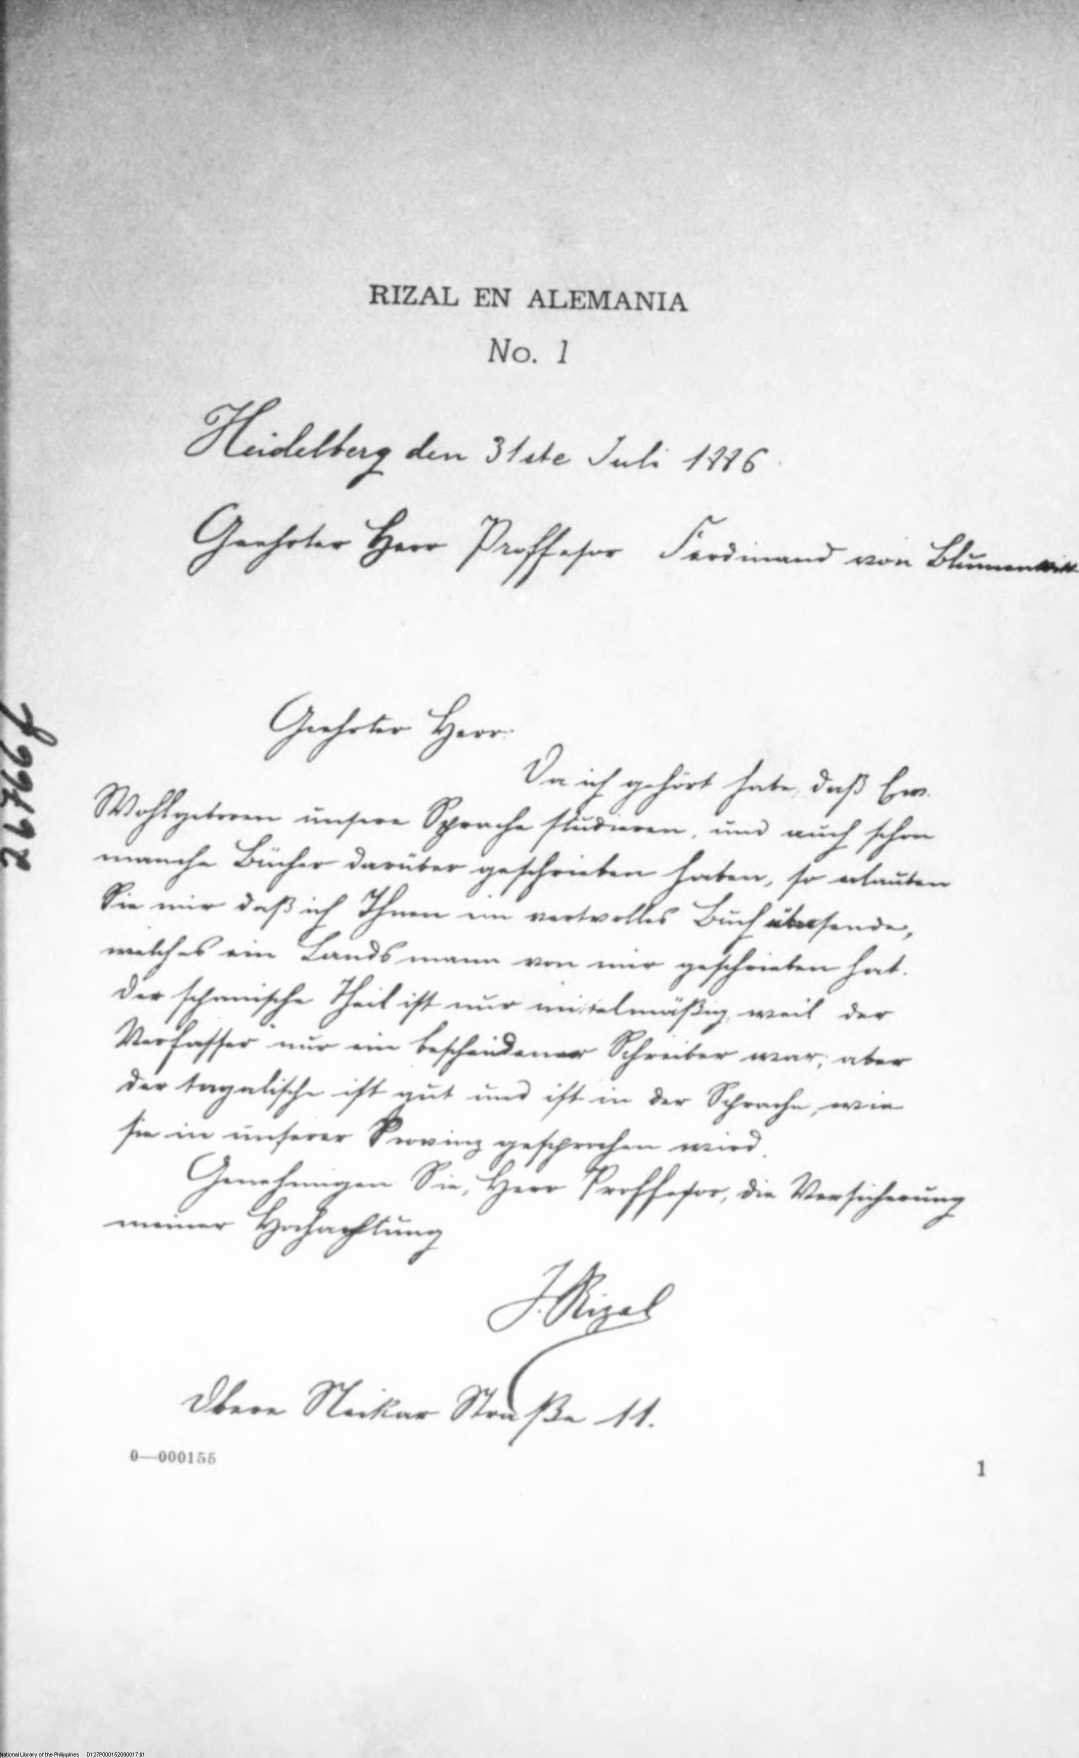 RIZAL EN ALEMANIA
No. 1
Heidelberg den 31ste Juli 1886
Geehrter Herr Proffesor Ferdinand von Blumentritt
Geehrter Herr.
Da ich gehört habe, daß Ew.
Wohlgeboren unsere Sprache studieren, und auch schon
manche Bücher darüber geschrieben haben, so erlauben
Sie mir daß ich Ihnen ein wertvolles Buch übersende,
welches ein Landsmann von mir geschrieben hat.
Der spanische Theil ist nur mittelmäßig, weil der
Verfasser nur ein bescheidener Schreiber war; aber
der tagalische ist gut und ist in der Sprache, wie
sie in unserer Provinz gesprochen wird.
Genehmigen Sie, Herr Proffesor, die Versicherung
meiner Hochachtung
J. Rizal
Obere Neckar Straße 11.
0—000155
1
26766f
National Library of the Philippines